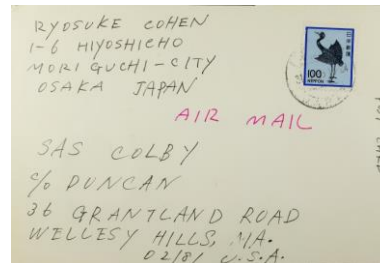 RYOSUKE COHEN
1-6 HIYOSHICHO
MORIGUCHI-CITY
OSAKA JAPAN
100
NIPPON
AIR MAIL
SAS COLBY
c/o DUNCAN
36 GRANTLAND ROAD
WELLESY HILLS, MA.
02181 U.S.A.